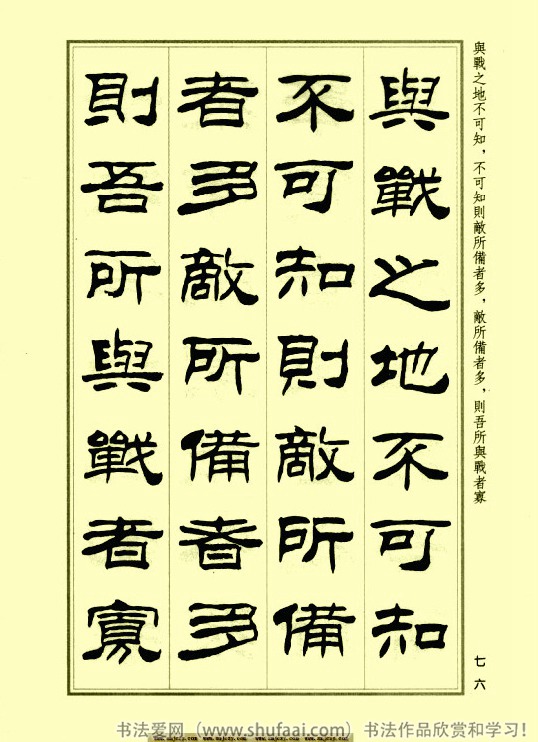 與戰之地不可知，不可知則敵所備者多，敵所備者多，則吾所與戰者寡
與戰之地不可知
不可知則敵所備
者多敵所備者多
則吾所與戰者寡
七六
书法爱网（www.shufaai.com）书法作品欣赏和学习！